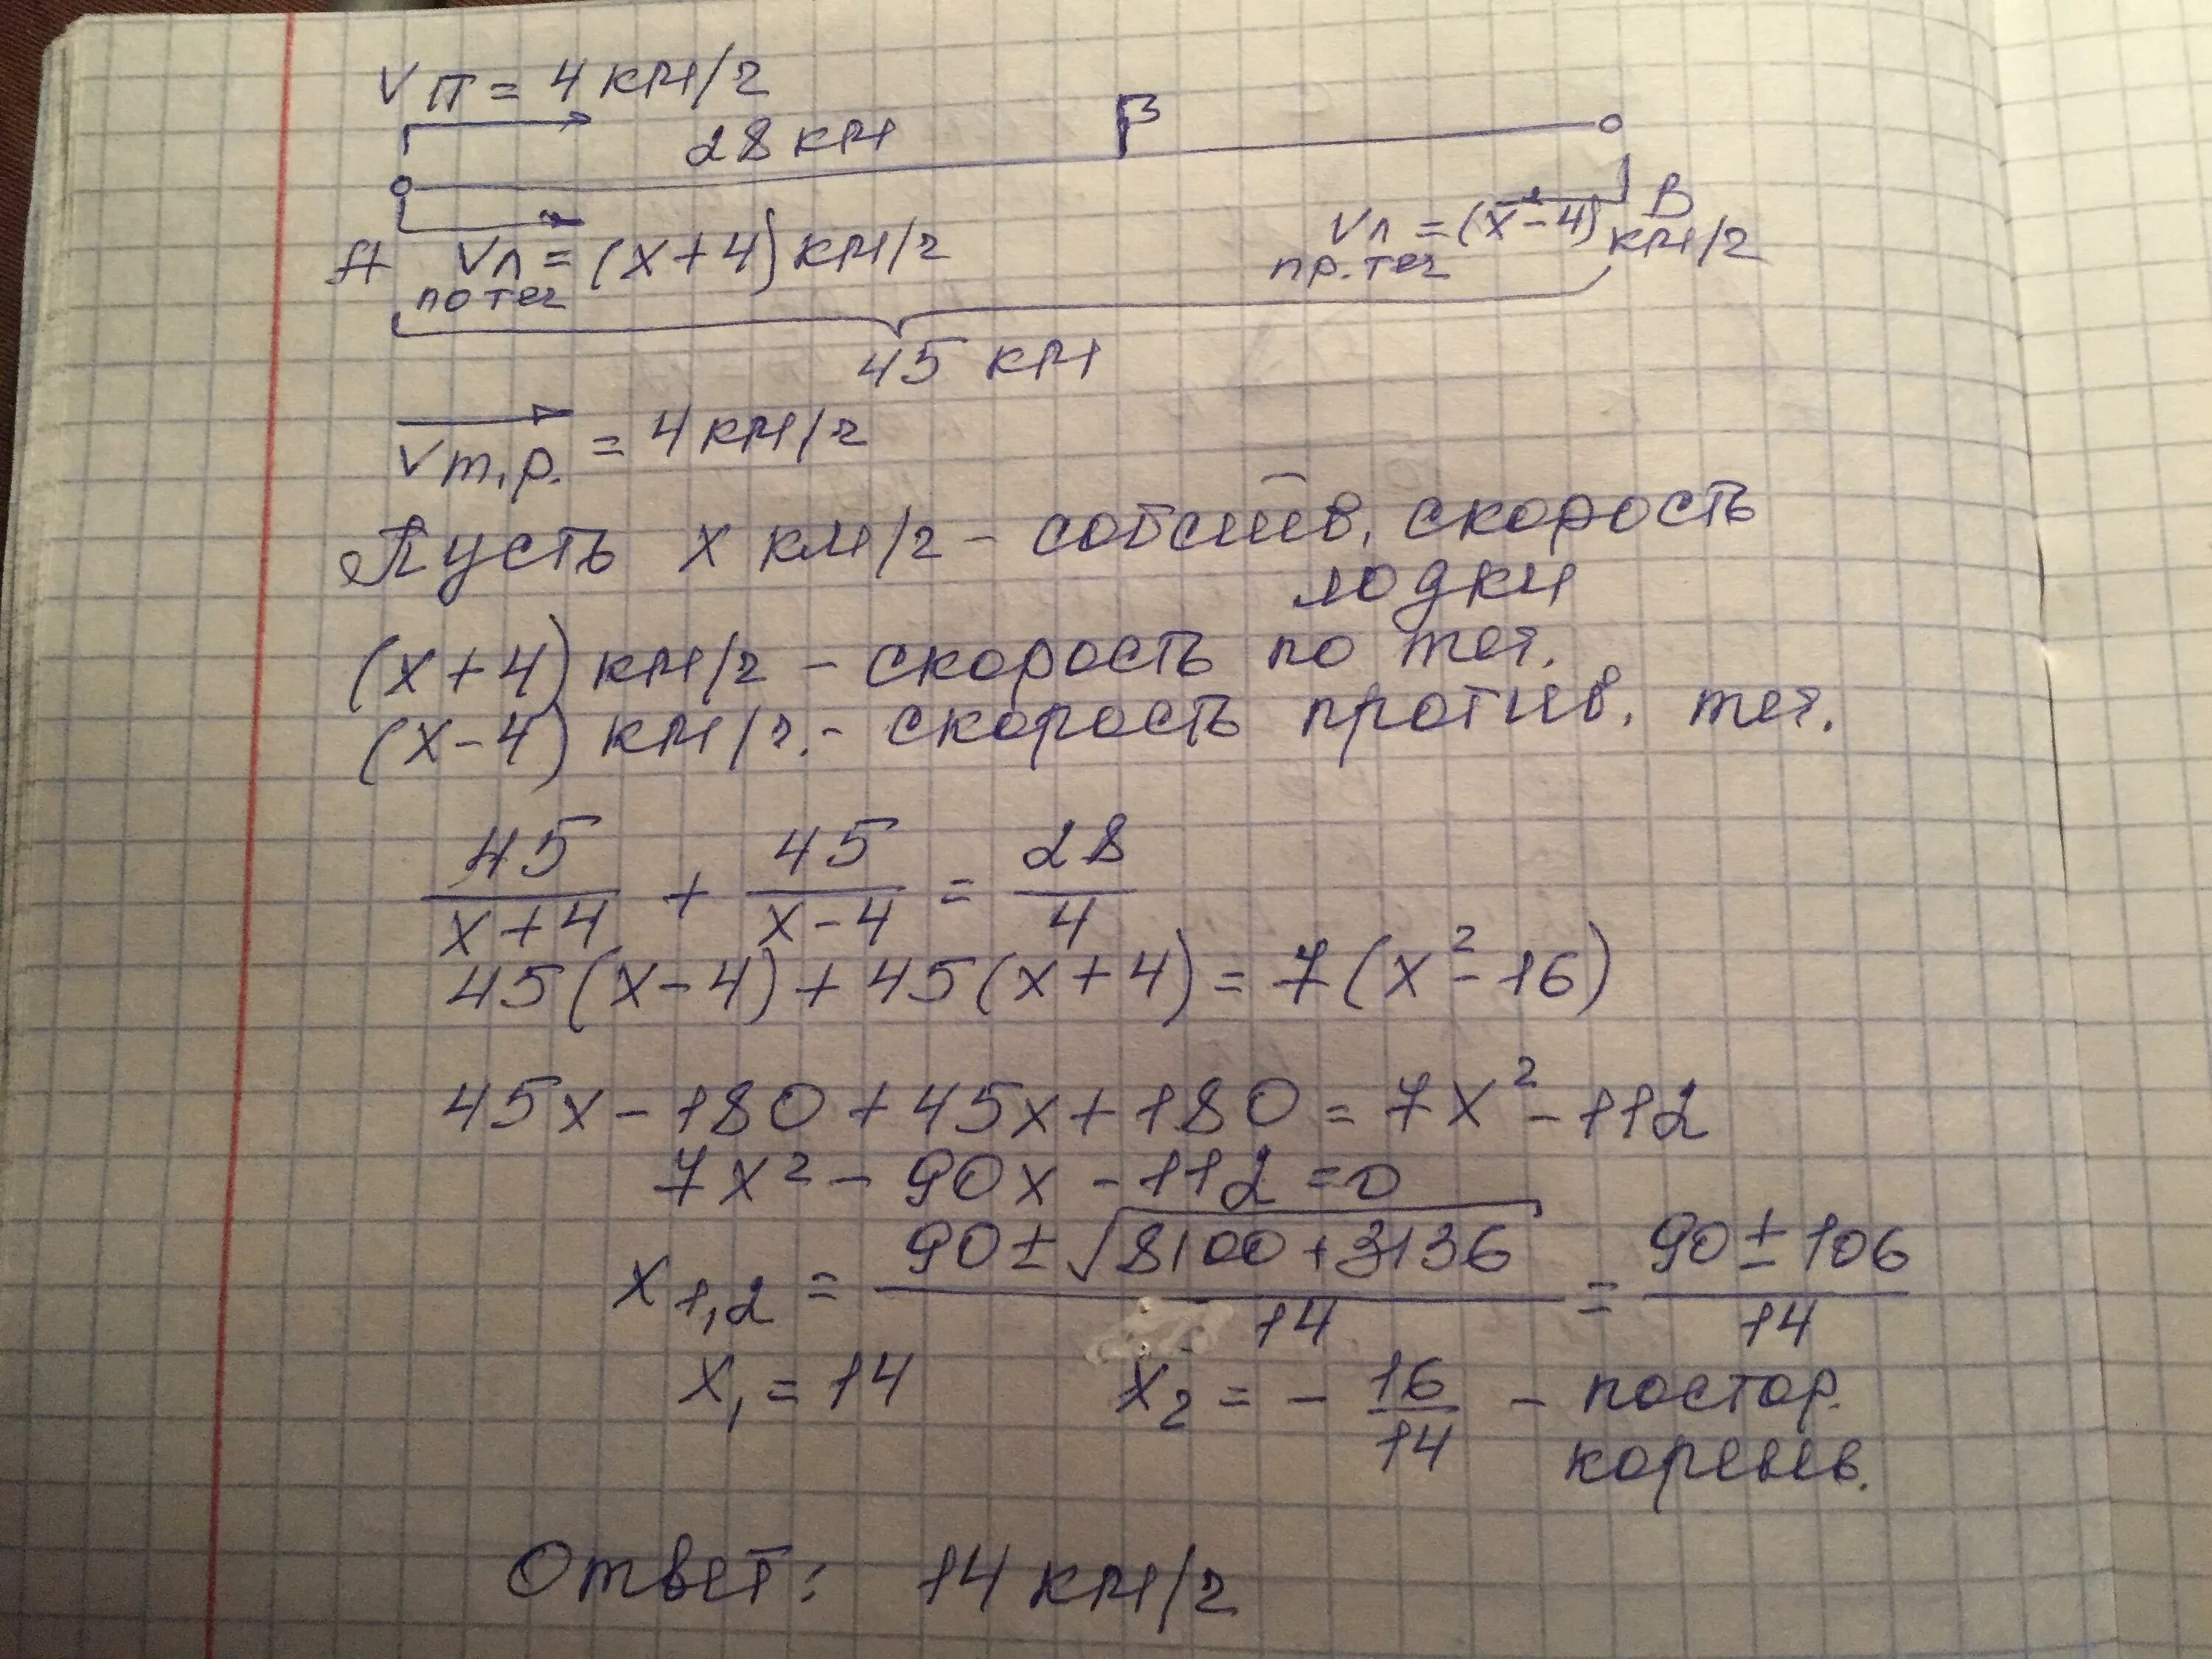 Vп = 4 км/ч
28 км
A
B
Vл = (x+4) км/ч
по теч
Vл = (x-4) км/ч
пр. теч
45 км
Vт.р. = 4 км/ч
Пусть x км/ч - собств. скорость
лодки
(x+4) км/ч - скорость по теч.
(x-4) км/ч. - скорость против. теч.
45/(x+4) + 45/(x-4) = 28/4
45(x-4) + 45(x+4) = 7(x²-16)
45x - 180 + 45x + 180 = 7x² - 112
7x² - 90x - 112 = 0
x1,2 = (90 ± √(8100 + 3136))/14 = (90 ± 106)/14
x1 = 14 x2 = - 16/14 - постор.
Ответ: 14 км/ч